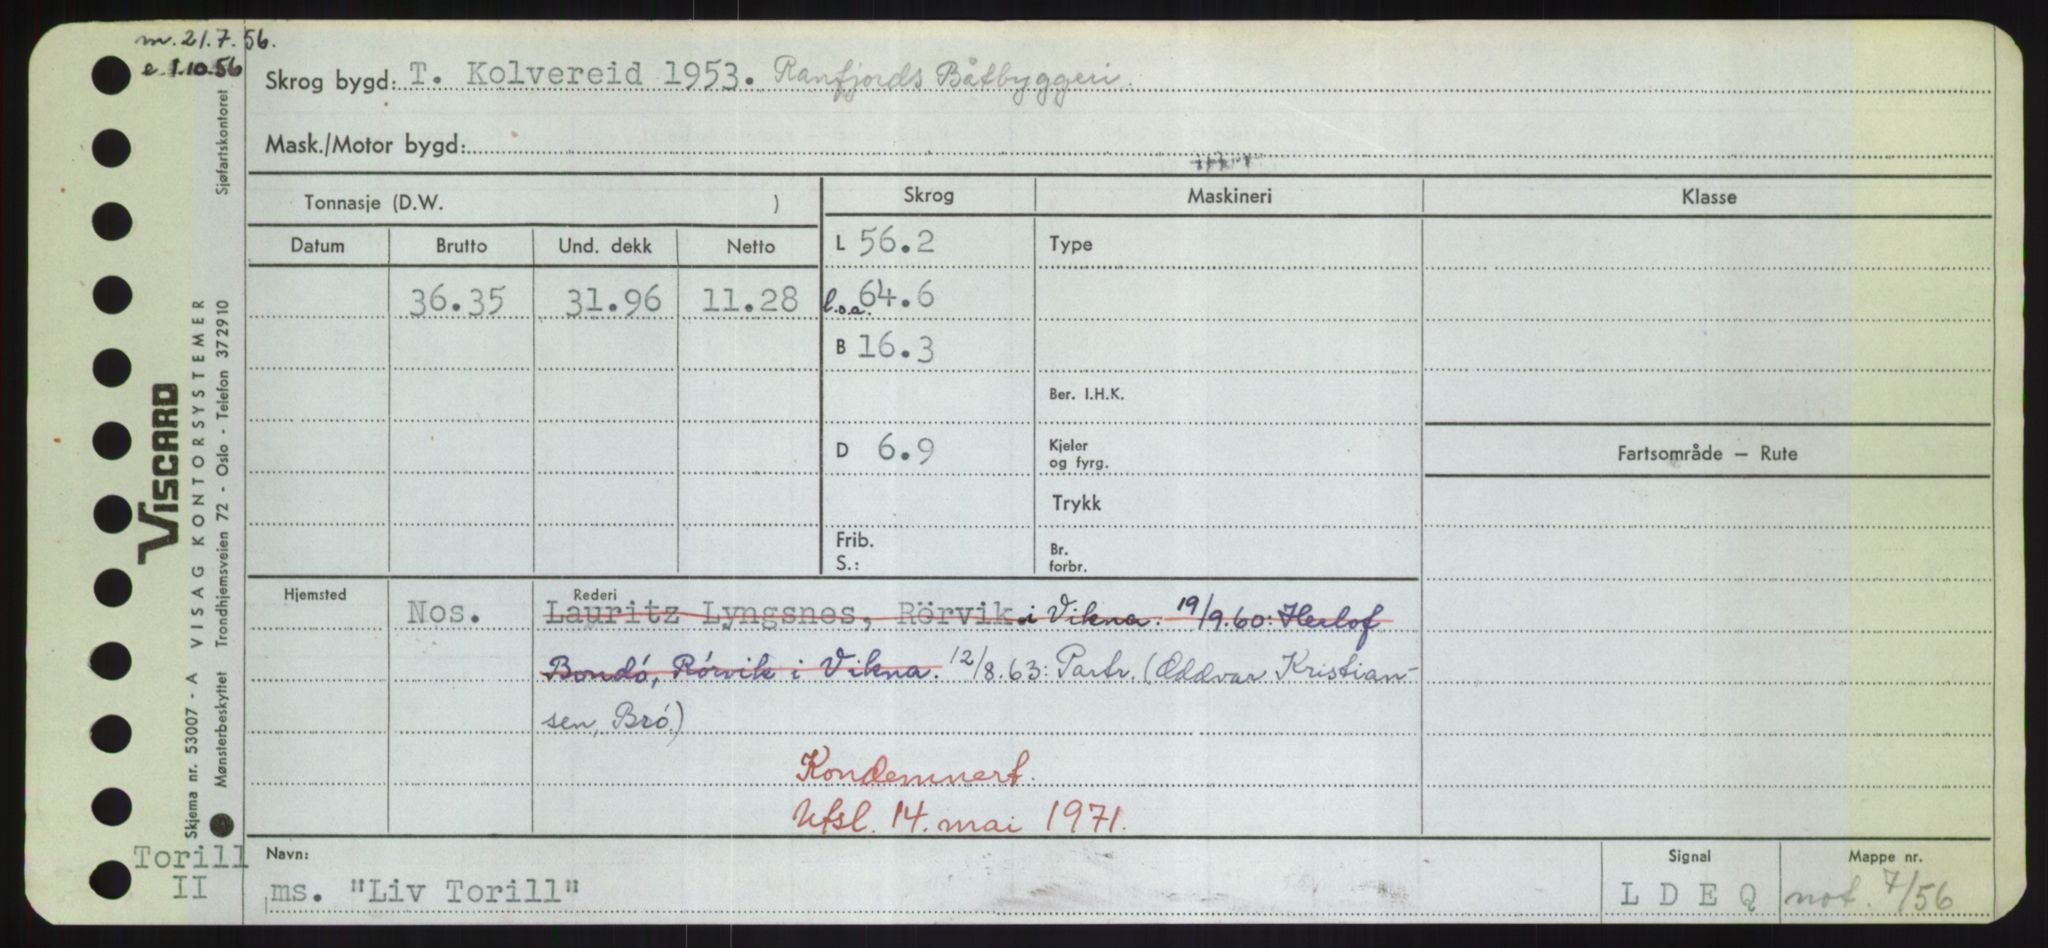 m. 21.7.56.
e 1.10.56
Skrog bygd: T. Kolvereid 1953. Ranfjords Båtbyggeri.
Mask./Motor bygd:
Tonnasje (D.W. )
Skrog
Maskineri
Klasse
Datum
Brutto
Und. dekk
Netto
L 56.2
Type
36.35
31.96
11.28
l.o.a. 64.6
B 16.3
Ber. I.H.K.
D 6.9
Kjeler
og fyrg.
Fartsområde – Rute
Trykk
Frib.
S.:
Br.
forbr.
Hjemsted
Nos.
Rederi
Lauritz Lyngsnes, Rörvik i Vikna. 19/9.60: Herlof
Bondó, Rórvik i Vikna. 12/8.63: Partr. (Oddvar Kristian-
sen, Bró.)
Kondemnert.
Utsl. 14. mai 1971.
Torill
II
Navn:
ms. "Liv Torill"
Signal
L D E Q
Mappe nr.
not. 7/56
VISCARD
VISAG KONTORSYSTEMER
Skjema nr. 53007 - A
Mønsterbeskyttet Trondhjemsveien 72 - Oslo - Telefon 372910
Sjøfartskontoret